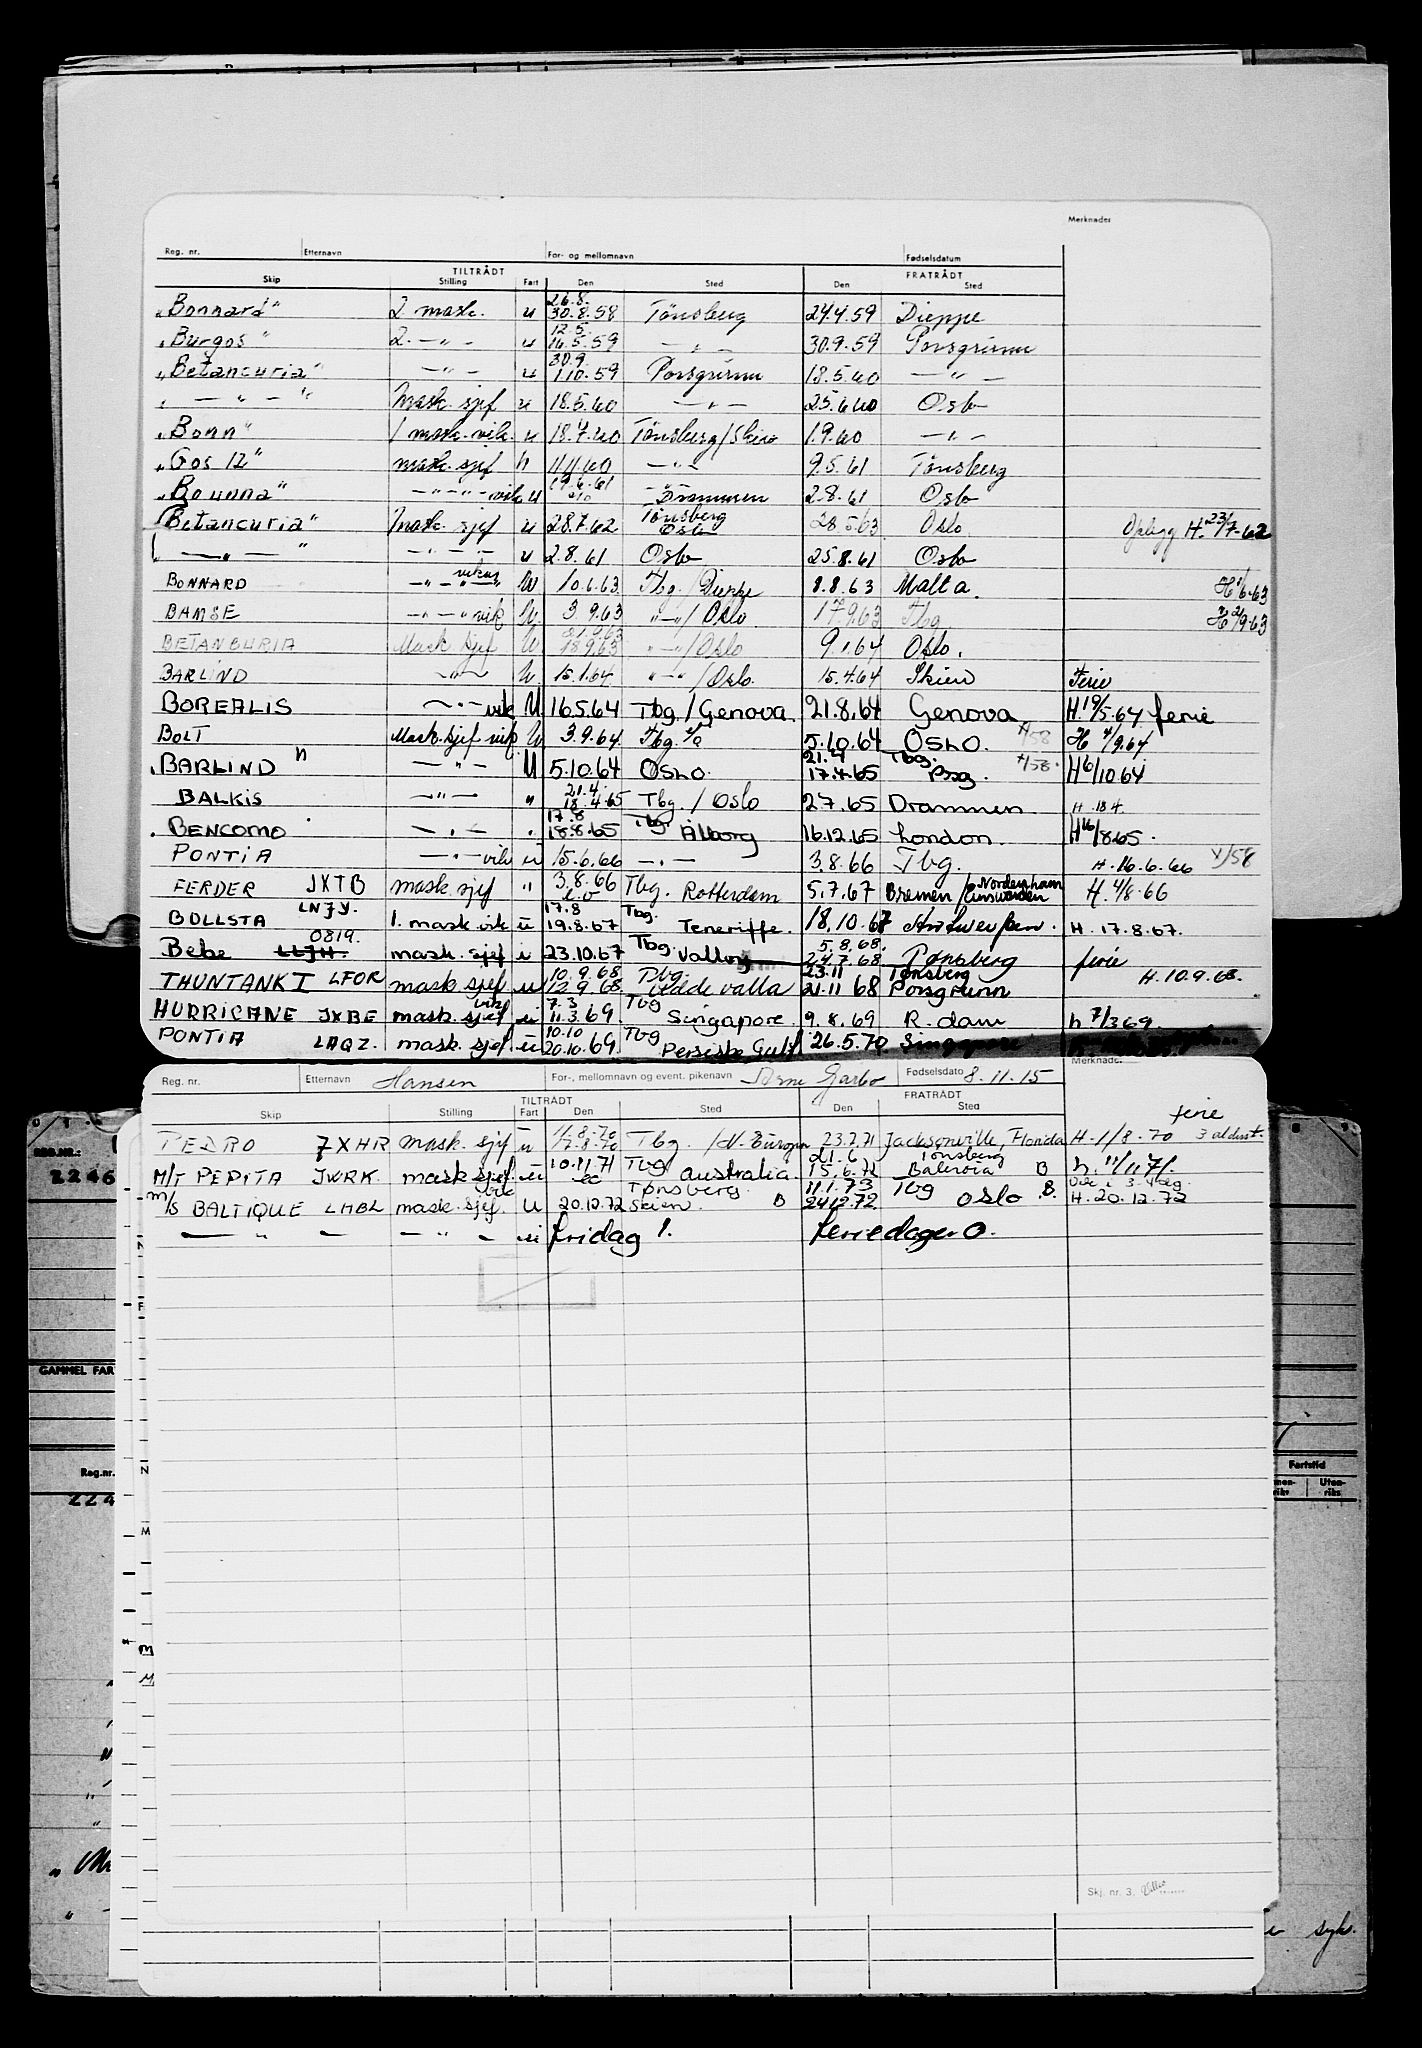 Merknader
Reg. nr. Etternavn For- og mellomnavn Fødselsdatum
TILTRÅDT FRATRÅDT
Skip Stilling Fart Den Sted Den Sted
"Bonnard" 2 mask. u 26.8. 30.8.58 Tönsberg 24.4.59 Dieppe
"Burgos" 2. —"— u 12.5. 16.5.59 —"— 30.9.59 Porsgrunn
"Betancuria" —"— u 30.9 1.10.59 Porsgrunn 18.5.60 —"—
" — " — " Mask. sjef u 18.5.60 —"— 25.6.60 Oslo
"Bonn" 1 mask. vik. u 18.7.60 Tönsberg/Skien 1.9.60 —"—
"Gos 12" mask. sjef h 1.11.60 —"— 9.5.61 Tönsberg
"Bounna" —"—"— vik u 19.6.61 —"— Drammen 2.8.61 Oslo
"Betancuria" Mask. sjef u 28.7.62 Tönsberg Oslo 28.5.63 Oslo Opplegg H. 23/7-62
— " — " —"—"— u 2.8.61 Oslo 25.8.61 Oslo
BONNARD —"—"— vikar U 10.6.63 Tbg./Dieppe 8.8.63 Malta. H 1/6-63
BAMSE —"—" vik U 3.9.63 "—"/Oslo 17.9.63 Tbg H 2/9-63
BETANCURIA Mask. sjef U 21.9.63 18.9.63 "—"/Oslo 9.1.64 Oslo.
BARLIND —"— U 15.1.64 "—"/Oslo. 15.4.64 Skien Ferie
BOREALIS —"— vik U 16.5.64 Tbg./Genova. 21.8.64 Genova H.19/5-64 ferie
BOLT Mask. sjef vik U 3.9.64 Tbg. 5.10.64 OSLO. H/58 H 4/9.64
"BARLIND" —"— U 5.10.64 OSLO. 21.4 17.4.65 Tbg. Prsg. H/58. H6/10 64
BALKIS —"— " 21.4. 18.4.65 Tbg./Oslo 2.7.65 Drammen H. 18 4.
BENCOMO —"— " 17.8 18.8.65 Tbg. Ålborg 16.12.65 London. H16/8.65.
PONTIA —"— vik u 15.6.66 —"— 3.8.66 Tbg. H. 16.6.66 V/58
FERDER JXTB mask. sjef " 3.8.66 Tbg. Rotterdam 5.7.67 Bremen/Nordenham Einswarden H. 4/8.66
BOLLSTA LNJY. 1. mask vik u 17.8 19.8.67 Tbg. Teneriffe. 18.10.67 Antwerpen. H. 17.8.67.
Bebe LLJH. 0819. mask. sjef u 23.10.67 Tbg. Valløy 5.8.68. 24.7.68 Tønsberg ferie
THUNTANK I LFOR mask. sjef u 10.9.68 12.9.68 Tbg. Uddevalla 23.11 21.11 68 Tønsberg Porsgrunn H. 10.9.68.
HURRICANE JXBE mask. sjef vik u 7.3 11.3.69. Tbg Singapore. 9.8.69 R. dam h 7/3 69.
PONTIA LAQZ. mask. sjef u 10.10 20.10.69 Tbg Persiske Gulf 26.5.70 Singapore
Merknader
Reg. nr. Etternavn Hansen For-, mellomnavn og event. pikenavn Arne Garbo Fødselsdato 8.11.15
TILTRÅDT FRATRÅDT
Skip Stilling Fart Den Sted Den Sted
PEDRO JXHR mask. sjef u 11.8.70 17.8.70 Tbg. /N. Europa 23.2.71 Jacksonville, Florida H. 1/8.70 ferie
M/T PEPITA JWRK. mask. sjef. u 10.11 71 Tbg australia. 21.6 15.6.72 Tønsberg B h. 11/11 71.
M/S BALTIQUE LMBL mask. sjef. vik U 20.12.72 Tønsberg. Skien. B 11.1.73 24.12.72 Tbg Oslo B. H. 20.12.72
— " — — " — u fridag 1. feriedager 0.
REG.NR.:
2246
GAMMEL FAR
Reg.nr.
224
Fartstid
Uten-
riks
Skj. nr. 3.
syk.